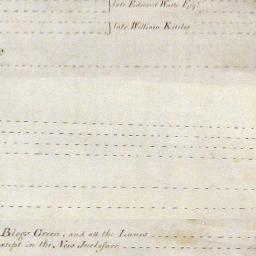 late Edward Watts Esqr.
late William Kitche
Blogs Green, and all the Lanes
except in the New Inclosure